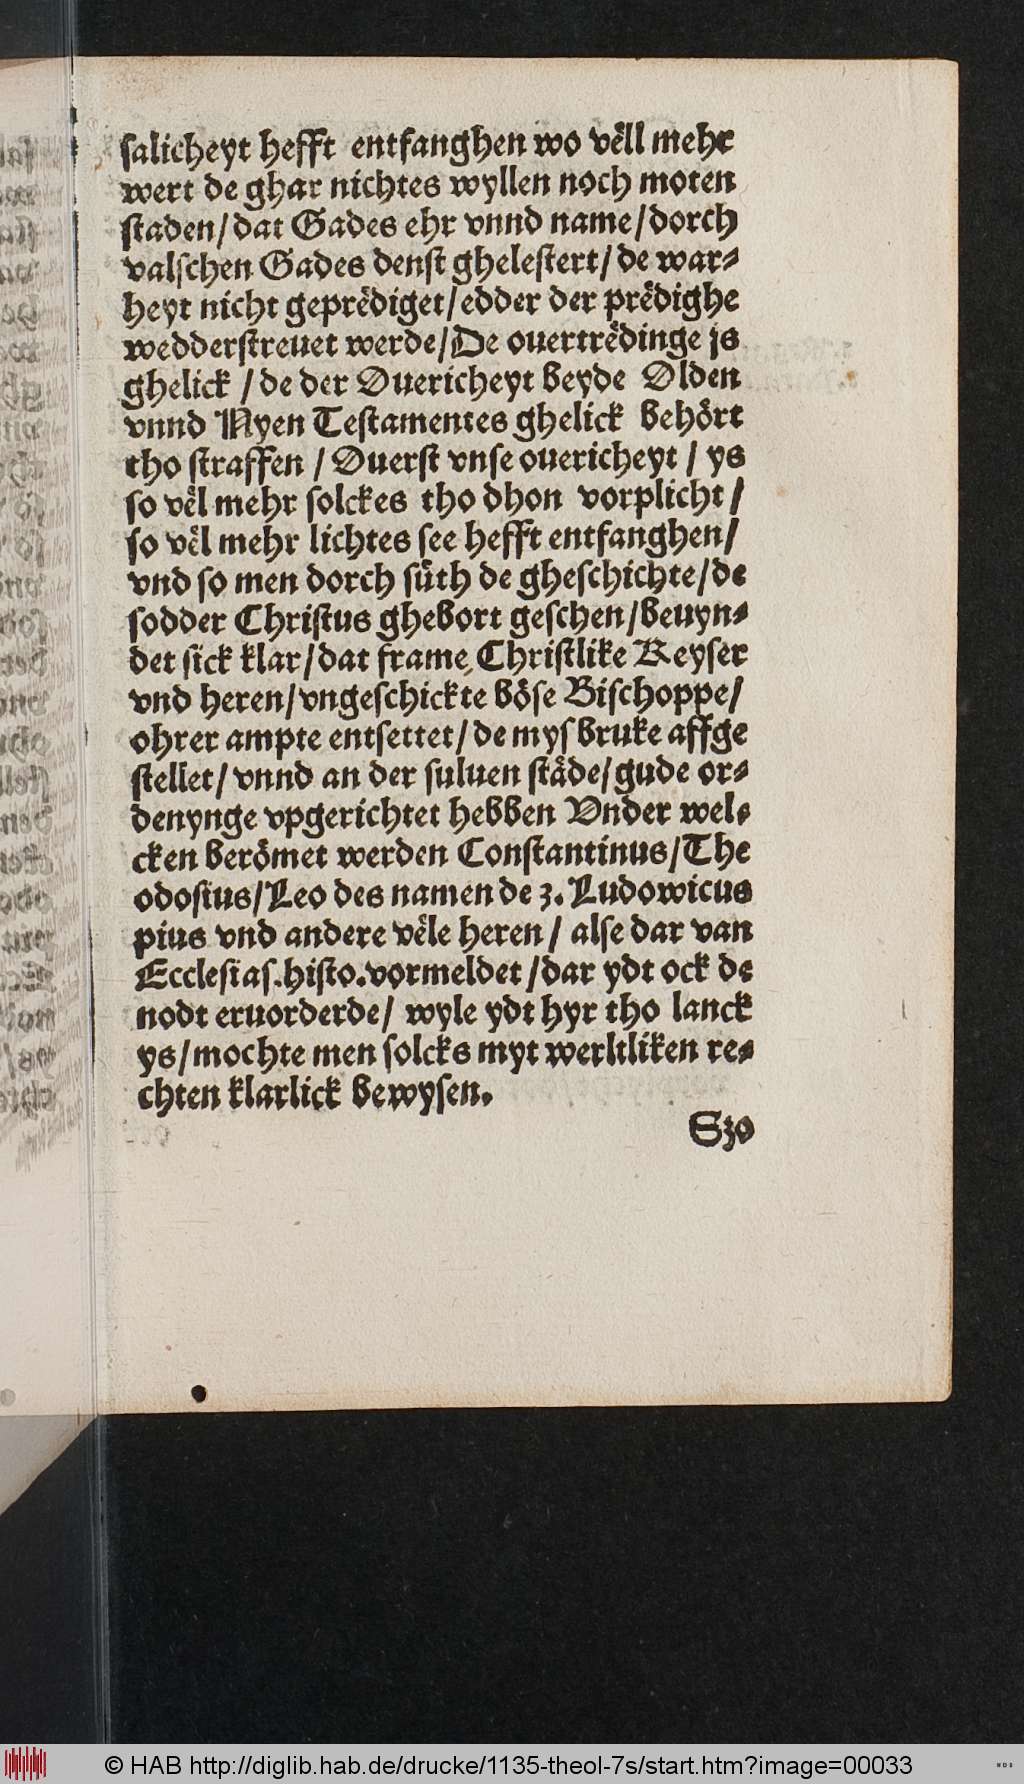 ſalicheyt hefft entfanghen wo vëll mehr
wert de ghar nichtes wyllen noch moten
ſtaden/ dat Gades ehr vnnd name/ dorch
valſchen Gades denſt gheleſtert/ de war-
heyt nicht geprëdiget/ edder der prëdighe
wedderſtreuet werde/ De ouertrëdinge js
ghelick / de der Ouericheyt beyde Olden
vnnd Nyen Teſtamentes ghelick behört
tho ſtraffen / Ouerſt vnſe ouericheyt / ys
ſo vël mehr ſolckes tho dhon vorplicht /
ſo vël mehr lichtes ſee hefft entfanghen/
vnd ſo men dorch ſüth de gheſchichte/ de
ſodder Chriſtus ghebort geſchen/ beuyn-
det ſick klar/ dat frame, Chriſtlike Keyſer
vnd heren/ vngeſchickte böſe Biſchoppe/
ohrer ampte entſettet/ de myſbruke affge
ſtellet/ vnnd an der ſuluen ſtäde/ gude or-
denynge vpgerichtet hebben Vnder wel-
cken berömet werden Conſtantinus/ The
odoſius/ Leo des namen de 3. Ludowicus
pius vnd andere vële heren / alſe dar van
Eccleſiaſ.hiſto.vormeldet / dar ydt ock de
nodt eruorderde/ wyle ydt hyr tho lanck
ys/ mochte men ſolcks myt werltliken re-
chten klarlick bewyſen.
Szo
© HAB http://diglib.hab.de/drucke/1135-theol-7s/start.htm?image=00033